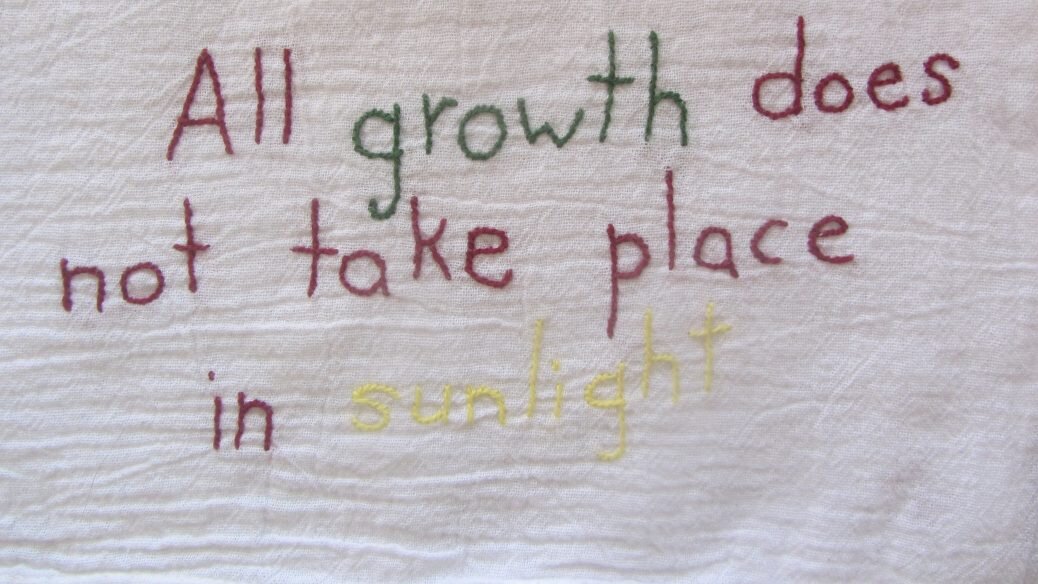 All growth does
not take place
in sunlight